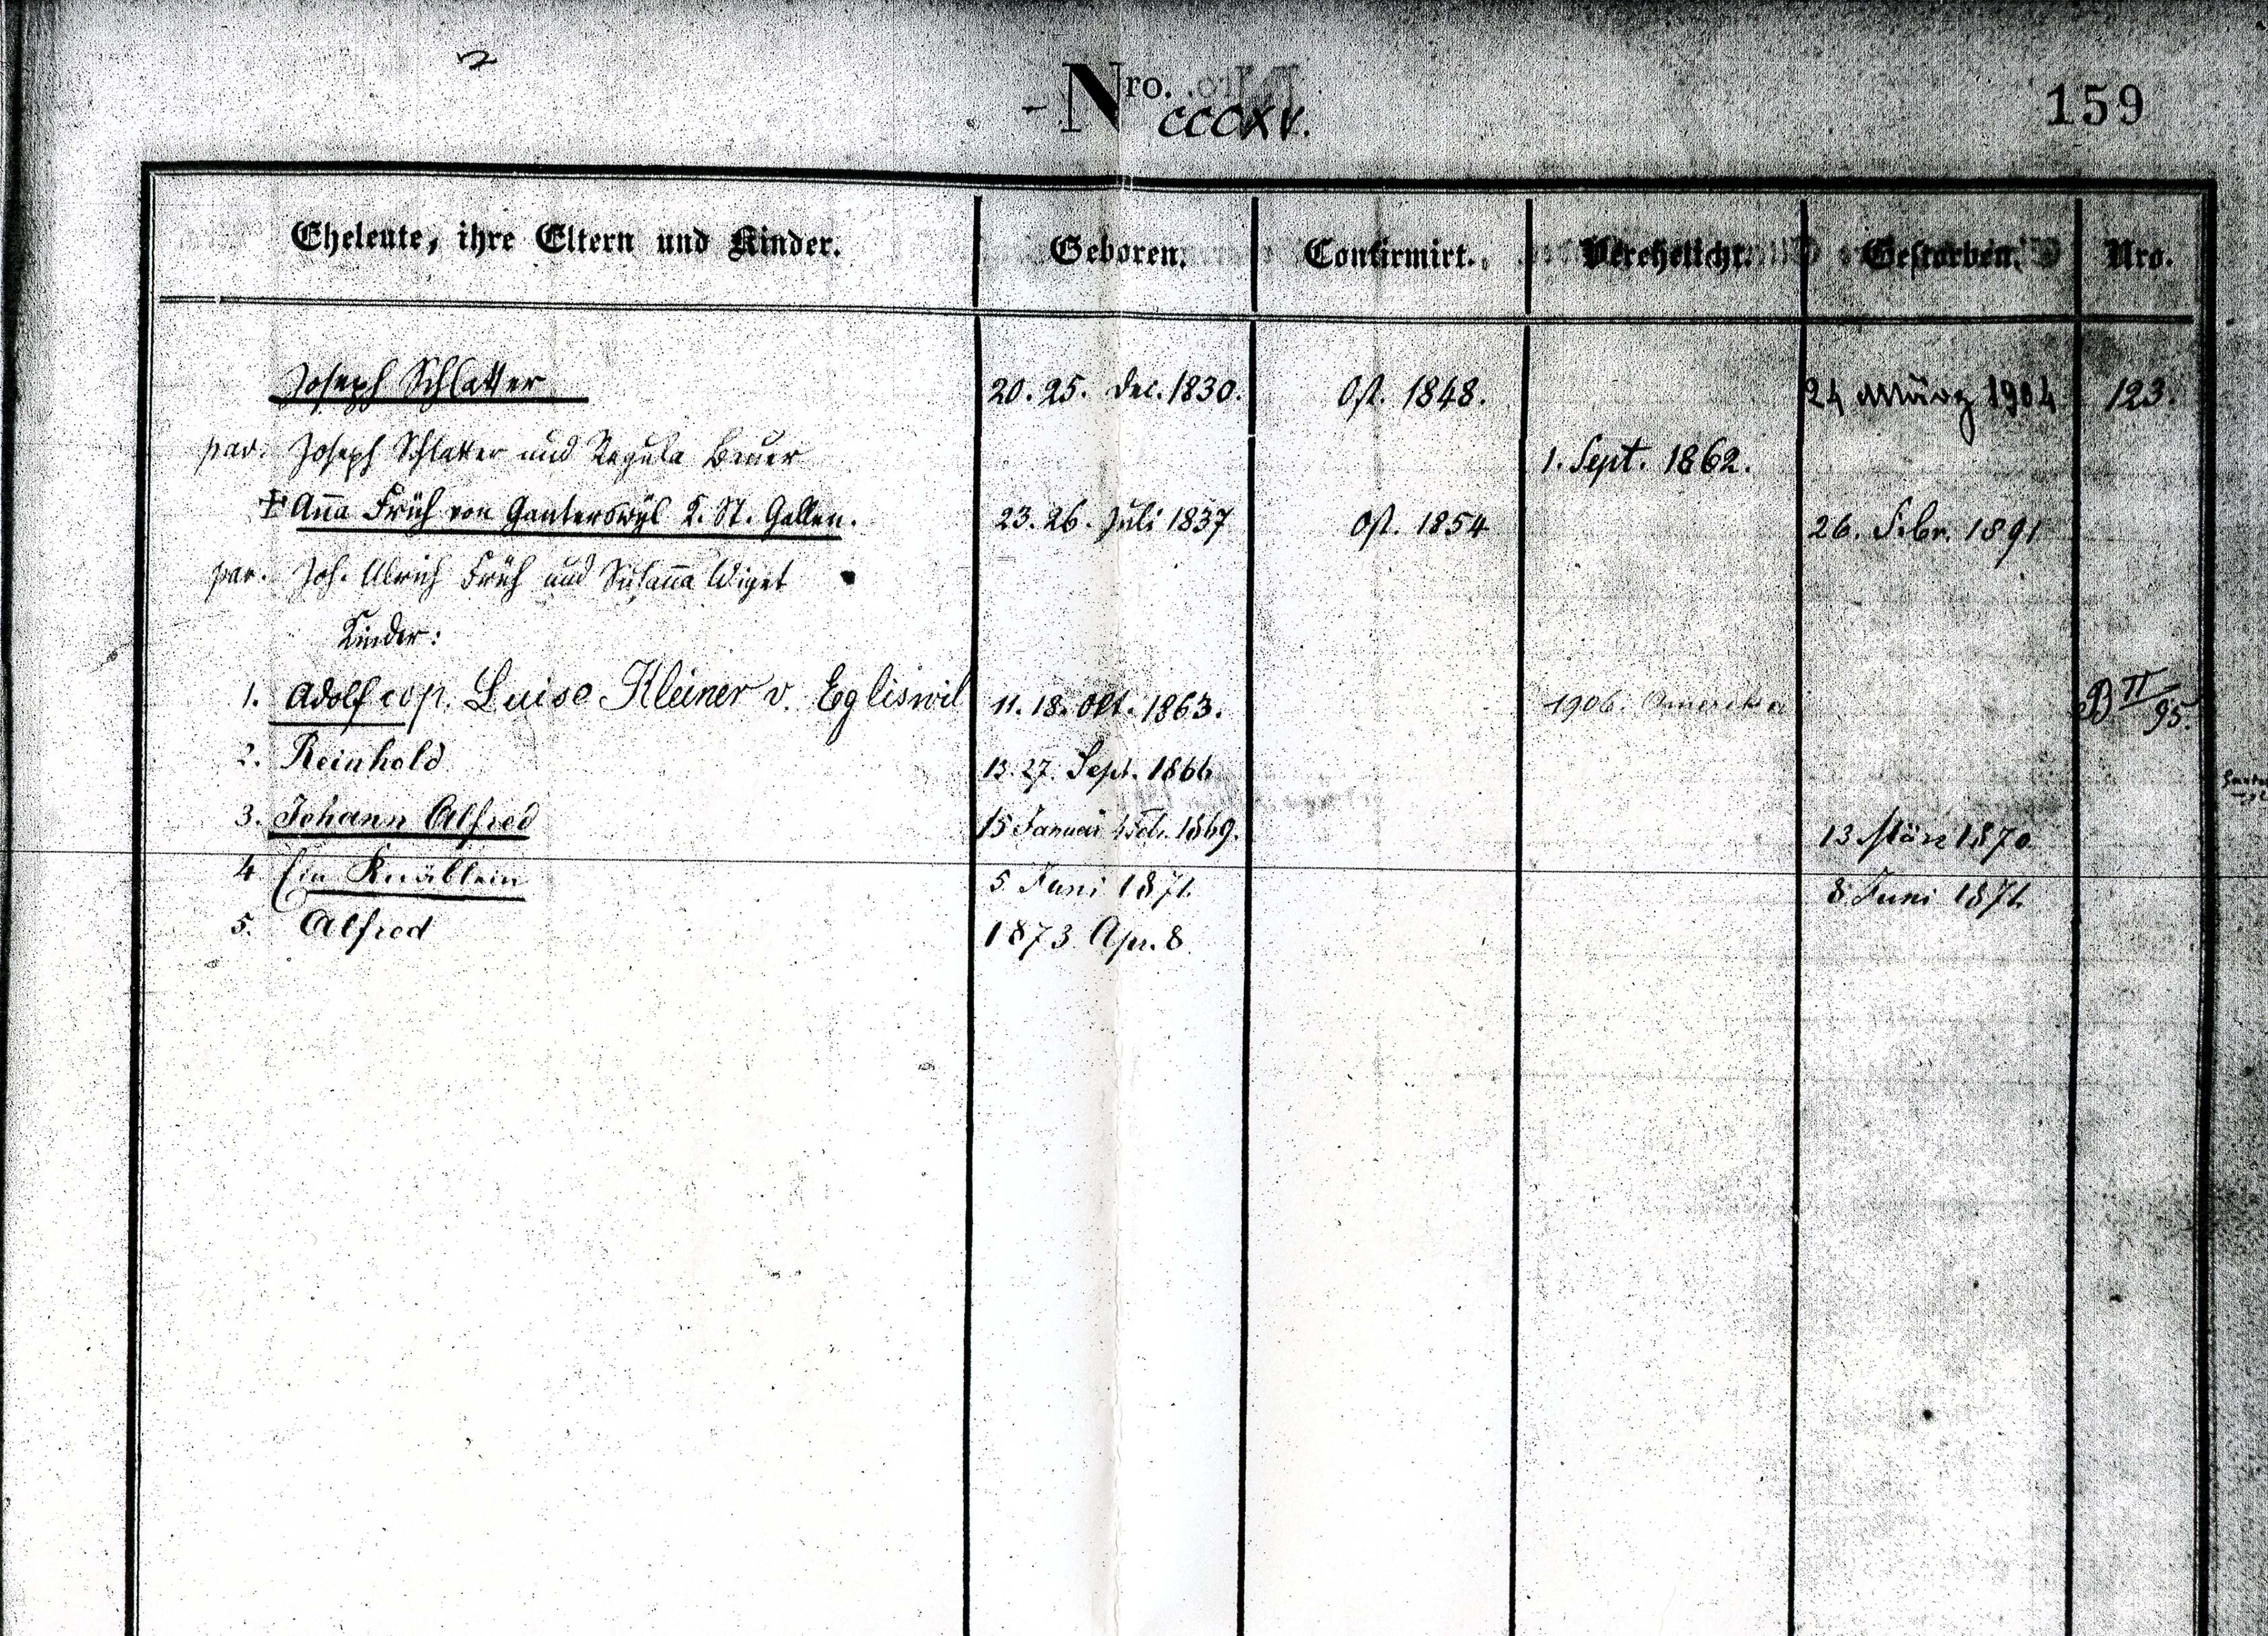 Nro. CCCXV.
159
Eheleute, ihre Eltern und Kinder. Geboren. Confirmirt. Verehelicht. Gestorben. Nro.
Joseph Schlatter 20. 25. Dec. 1830. Ost. 1848. 24 März 1904 123.
par. Joseph Schlatter und Regula Bauer 1. Sept. 1862.
Ana Früh von Ganterswÿl K. St. Gallen. 23. 26. Juli 1837 Ost. 1854 26. Febr. 1891
par. Joh. Ulrich Früh und Susana Wiget
Kinder:
1. Adolf cop. Luise Kleiner v. Egliswil 11. 18. Okt. 1863. 1906. Amerika B II/95.
2. Reinhold 13. 27. Sept. 1866
3. Johann Alfred 15 Januar Feb. 1869. 13 März 1870
4 Ein Knäblein 5. Juni 1871. 8 Juni 1871.
5. Alfred 1873 Apr. 8.